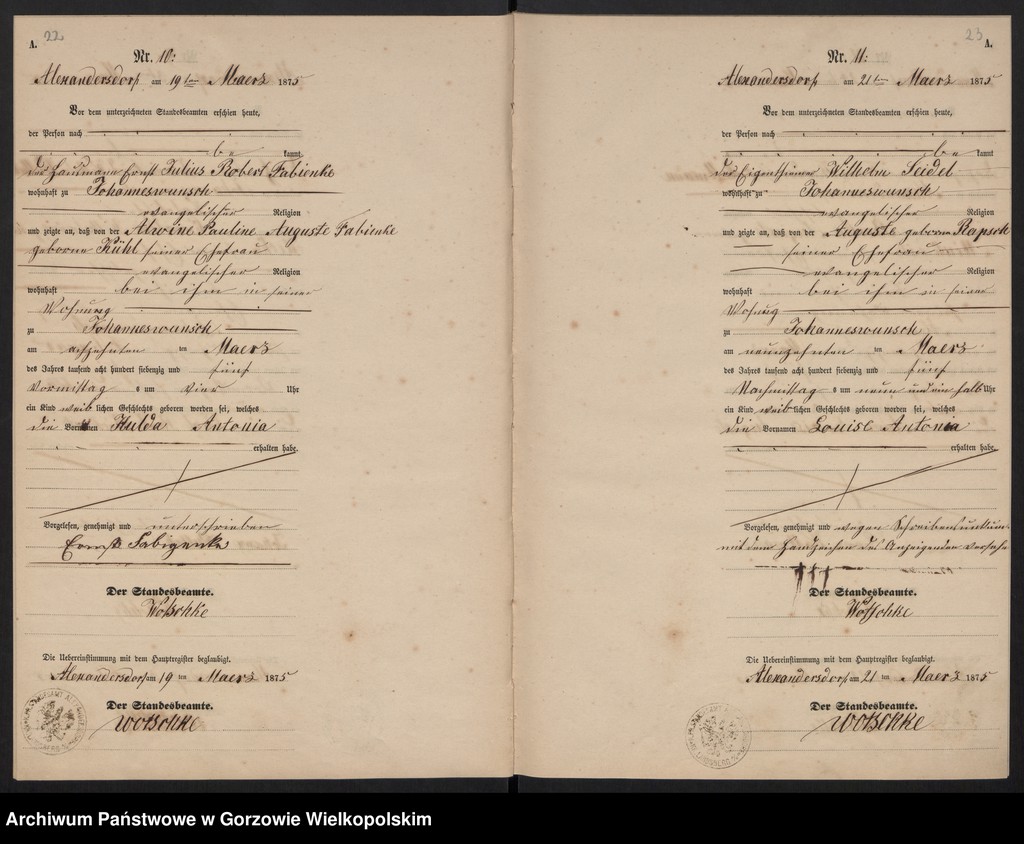 22
A.
Nr. 10:
Alexandersdorf am 19ten Maerz 1875
Vor dem unterzeichneten Standesbeamten erschien heute,
der Person nach
be kannt
Ernst Julius Robert Fabienke
wohnhaft zu Johanneswunsch
evangelischer Religion
und zeigte an, daß von der Alwine Pauline Auguste Fabienke
geborne Kühl seiner Ehefrau
evangelischer Religion
wohnhaft bei ihm in seiner
Wohnung
zu Johanneswunsch
am achzehnten ten Maerz
des Jahres tausend acht hundert siebenzig und fünf
Vormittag s um vier Uhr
ein Kind weib lichen Geschlechts geboren worden sei, welches
die Vornamen Hulda Antonia
erhalten habe.
Vorgelesen, genehmigt und unterschrieben
Ernst Fabigenke
Der Standesbeamte.
Wotschke
Die Uebereinstimmung mit dem Hauptregister beglaubigt.
Alexandersdorf am 19 ten Maerz 1875
Der Standesbeamte.
Wotschke
23
A.
Nr. 11:
Alexandersdorf am 21ten Maerz 1875
Vor dem unterzeichneten Standesbeamten erschien heute,
der Person nach
be kannt
der Eigenthümer Wilhelm Seidel
wohnhaft zu Johanneswunsch
evangelischer Religion
und zeigte an, daß von der Auguste geborne Rapsch
seiner Ehefrau
evangelischer Religion
wohnhaft bei ihm in seiner
Wohnung
zu Johanneswunsch
am neunzehnten ten Maerz
des Jahres tausend acht hundert siebenzig und fünf
Nachmittag s um neun und ein halb Uhr
ein Kind weib lichen Geschlechts geboren worden sei, welches
die Vornamen Louise Antonia
erhalten habe.
Vorgelesen, genehmigt und wegen Schreibensunkunde
mit dem Handzeichen des Anzeigenden versehen
†††
Der Standesbeamte.
Wotschke
Die Uebereinstimmung mit dem Hauptregister beglaubigt.
Alexandersdorf am 21 ten Maerz 1875
Der Standesbeamte.
Wotschke
Archiwum Państwowe w Gorzowie Wielkopolskim